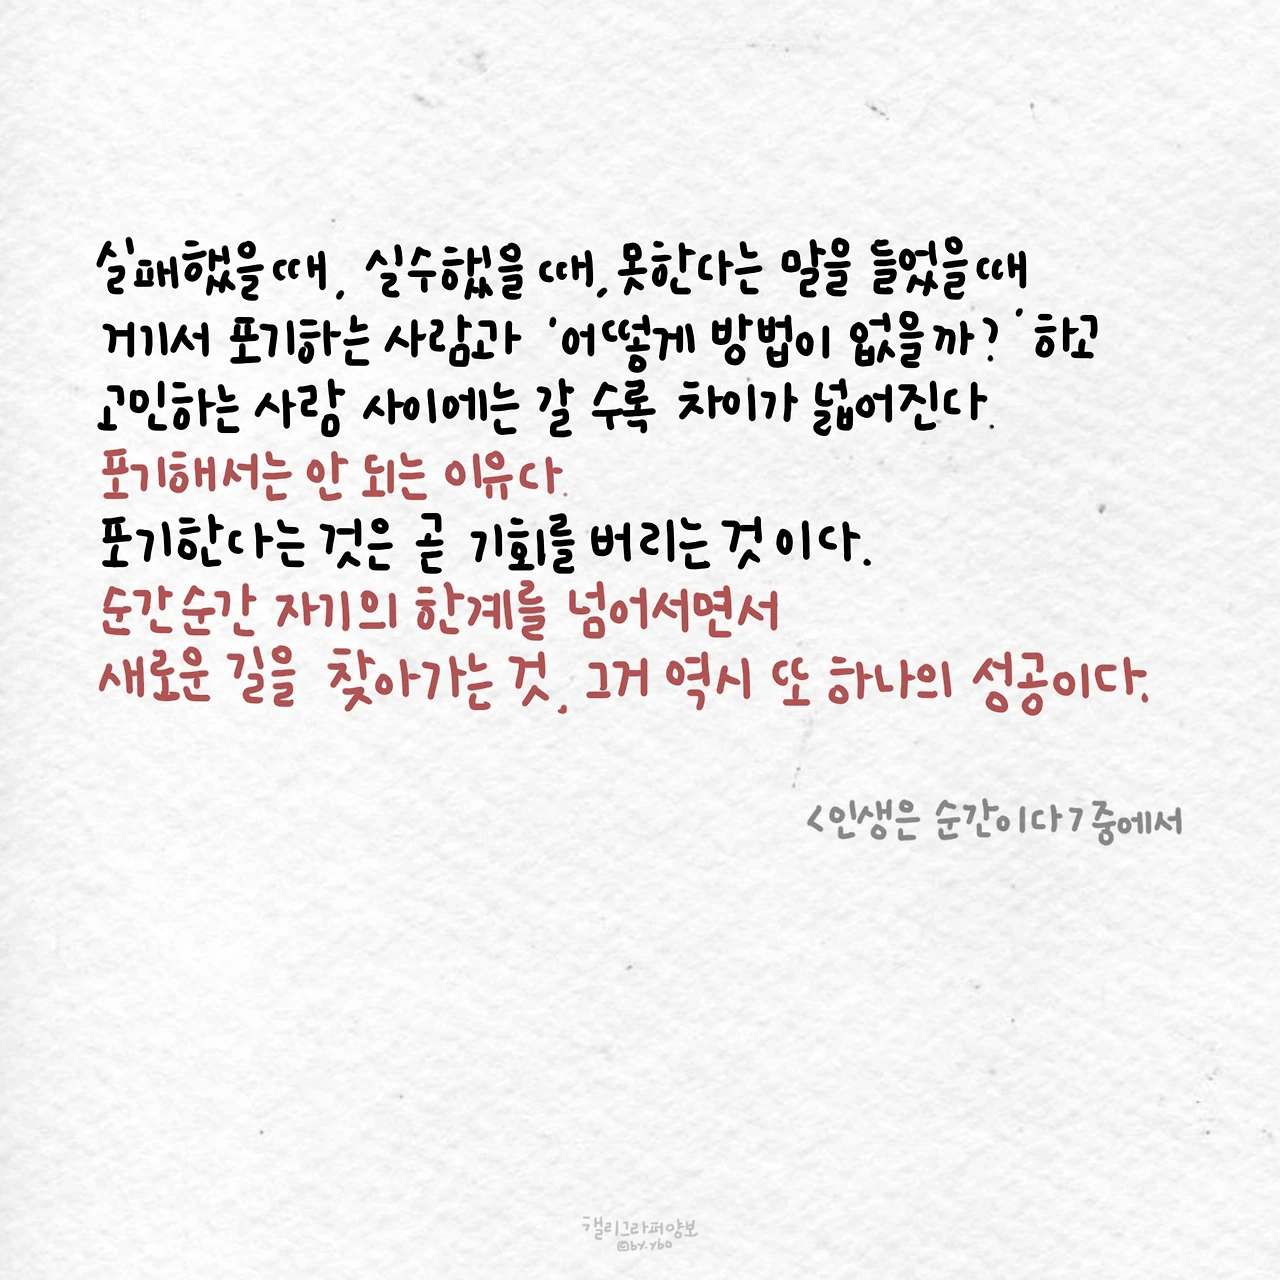 실패했을때, 실수했을 때, 못한다는 말을 들었을때
거기서 포기하는 사람과 '어떻게 방법이 없을까?' 하고
고민하는 사람 사이에는 갈 수록 차이가 넓어진다.
포기해서는 안 되는 이유다.
포기한다는 것은 곧 기회를 버리는 것이다.
순간순간 자기의 한계를 넘어서면서
새로운 길을 찾아가는 것, 그거 역시 또 하나의 성공이다.
<인생은 순간이다> 중에서
캘리그라퍼양보
©by.ybo